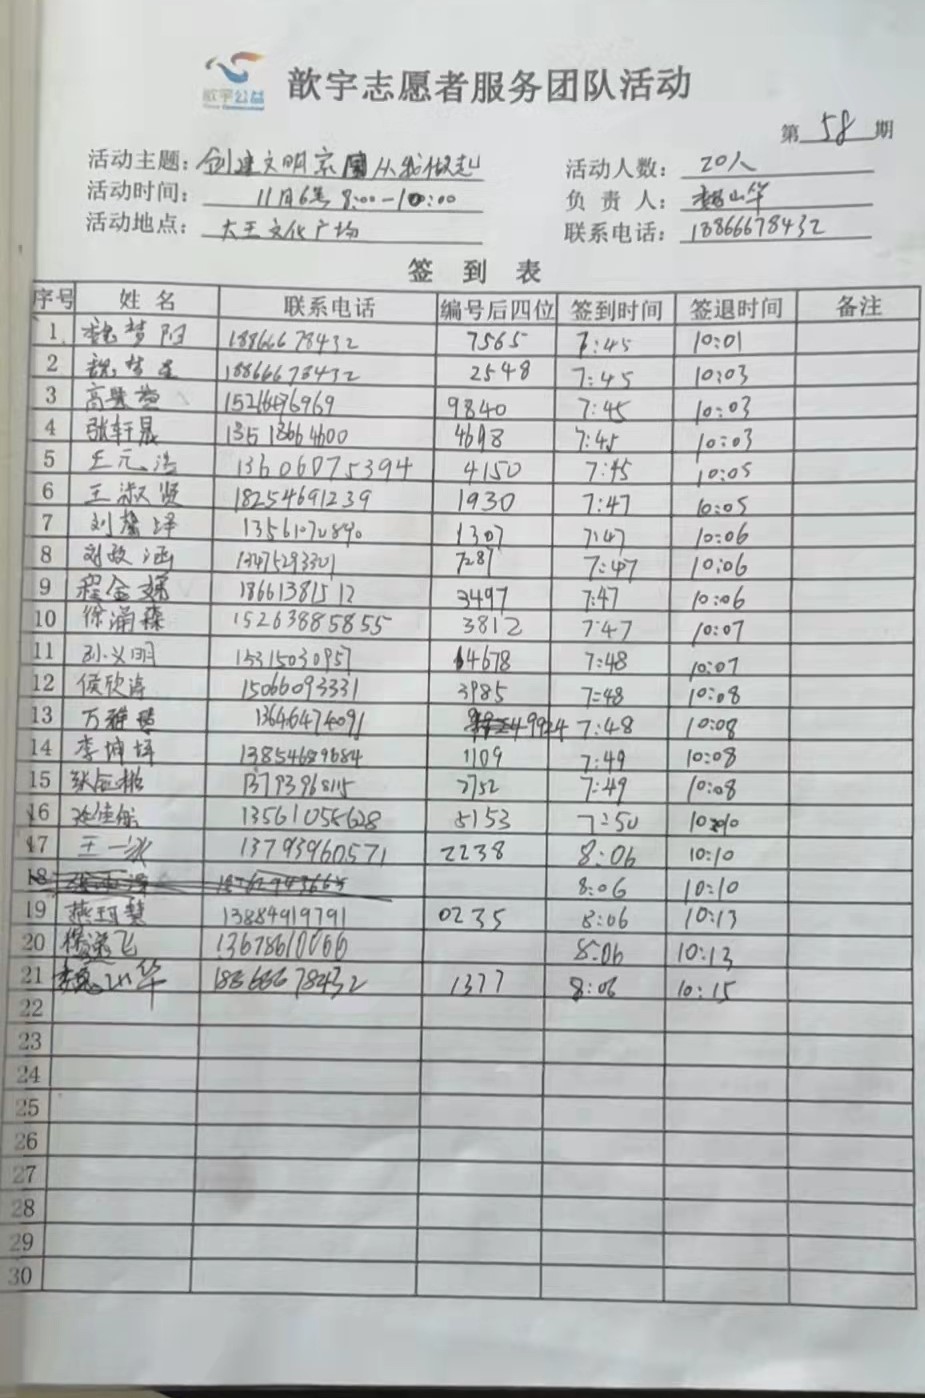 歆宇公益
歆宇志愿者服务团队活动
第 58 期
活动主题: 创建文明家园从我做起
活动人数: 20人
活动时间: 11月6号 8:00-10:00
负责人: 魏山华
活动地点: 大王文化广场
联系电话: 18866678432
签到表
序号 姓名 联系电话 编号后四位 签到时间 签退时间 备注
1 魏梦阳 18866678432 7565 7:45 10:01
2 魏梦 18866678432 2548 7:45 10:03
3 高 9840 7:45 10:03
4 张轩晟 13518664600 4698 7:45 10:03
5 王元浩 13606075394 4150 7:45 10:05
6 王淑贤 18254691239 1930 7:47 10:05
7 刘馨泽 1307 7:47 10:06
8 刘政涵 13475293321 7287 7:47 10:06
9 程金 18661381512 3497 7:47 10:06
10 徐涌森 15263885855 3812 7:47 10:07
11 孙义明 15315030957 4678 7:48 10:07
12 侯欣涛 15066093331 3985 7:48 10:08
13 万雅 13646474091 4994 7:48 10:08
14 李坤 13854689684 1109 7:49 10:08
15 张 13793968115 2752 7:49 10:08
16 佳航 13561055628 5153 7:50 10:10
17 王一 13793960571 2238 8:06 10:10
18 8:06 10:10
19 燕 13884919791 0235 8:06 10:13
20 飞 13678610066 8:06 10:13
21 魏山华 18866678432 1377 8:06 10:15
22
23
24
25
26
27
28
29
30